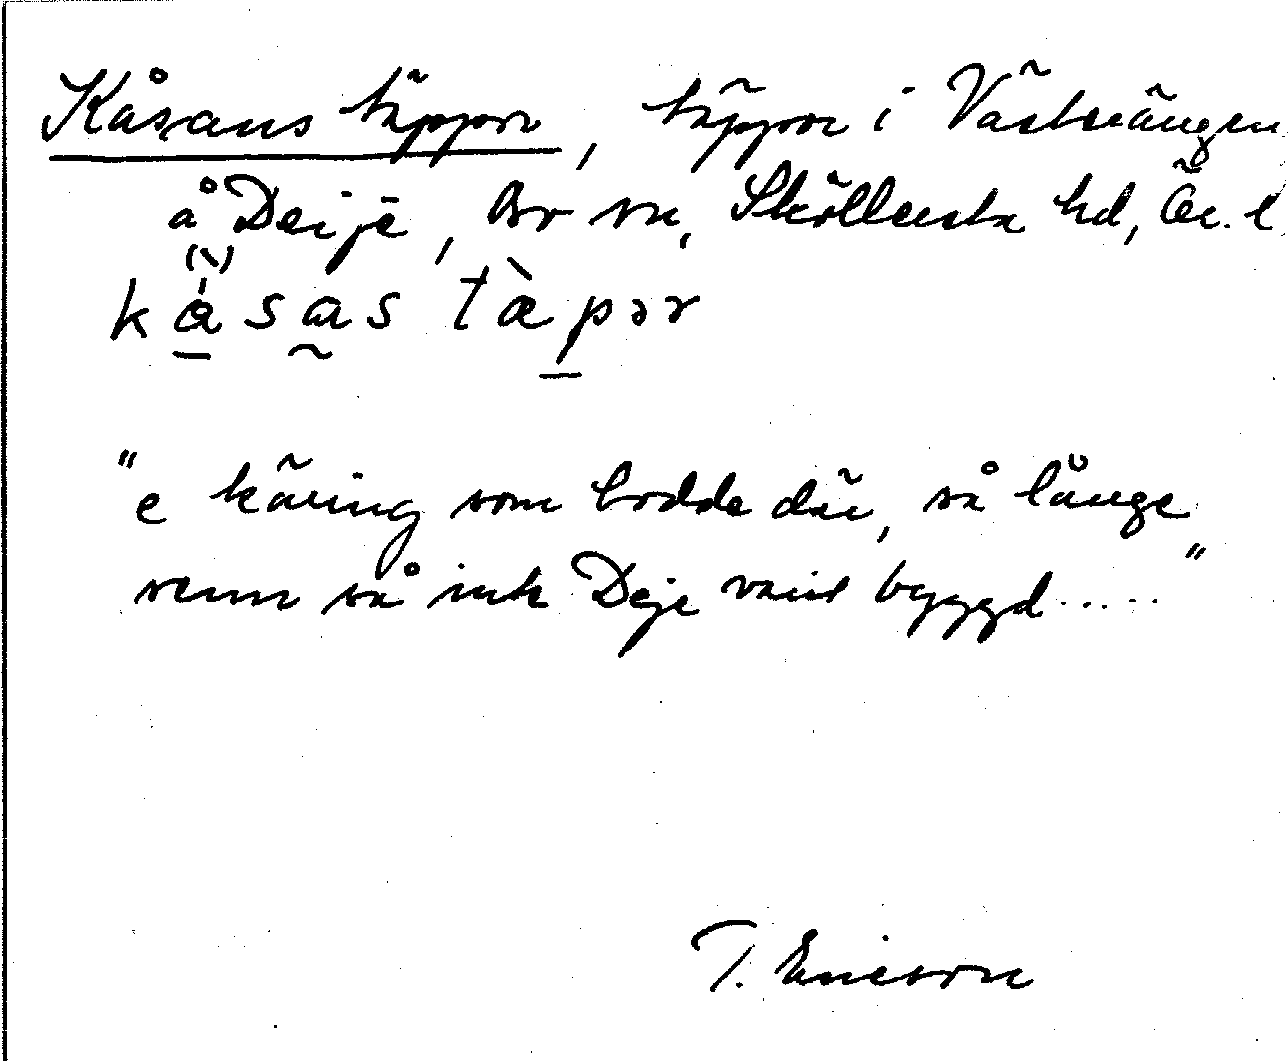 Kåsans täppor, täppor i Västerängen
å Deije, Bo sn, Sköllersta hd, Ör. l
kåsas tæpər
"e käring som bodde där, så länge
senn så int Deje vart byggd....."
T. Ericson